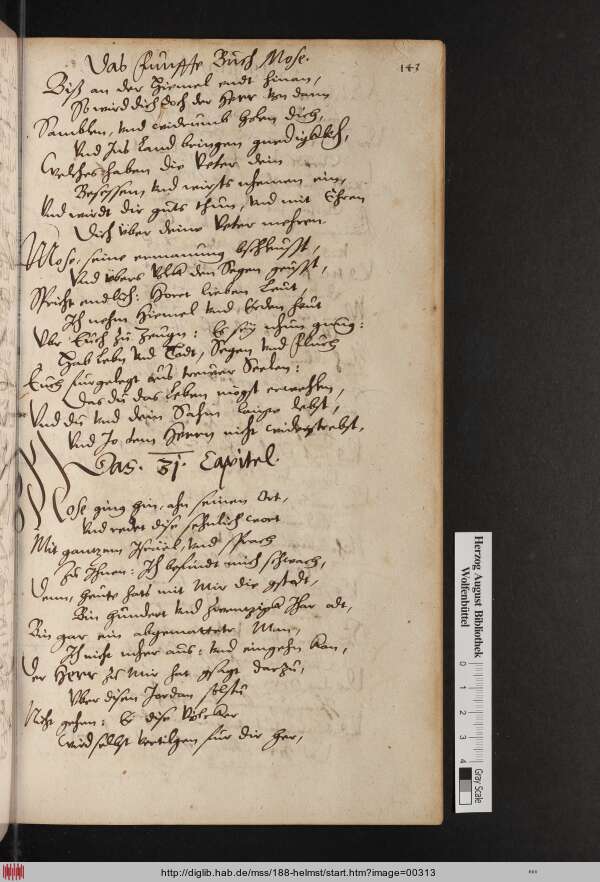 Das fünffte Buch Mose.
147
Biß an der Himel endt hinan,
So wird dich doch der Herr von dann
Samblen, vnd widrumb holen dich,
Vnd Ins Land bringen
Welches haben die Veter dein
Besessen vnd wirsts nemen ein,
Vnd wirdt dir guts thun, vnd mit Ehren
Dich über deine Veter mehren
Mose, seine ermanung bschleusst,
Vnd übers Volk den Segen geüsst,
Spricht endlich: Horet lieben Leut,
Ich nehm Himel vnd Erden heut
Vber Euch zu Zeugn:
Hab lebn vnd Todt, Segen vnd fluch
Euch furgelegt aus trewer Seelen:
Das du das Leben mögst erwehlen,
Vnd du vnd dein Sahm lange lebst,
Vnd Jo dem Herrn nicht widerstrebst,
Das. 31. Capitel.
Mose ging hin, ahn seinen Ort,
Vnd redet dise wort
Mit gantzem Israel, vnd sprach
Zu Ihnen: Ich befindt mich schwach,
Denn, heute hats mit Mir die gstadt,
Bin hundert vnd zwentzigk Jhar adt,
Bin gar ein abgematteter Man,
Ich nicht mher aus: vnd eingehn kan,
Der Herr zu Mir hat gsagt darzu,
Vber disen Jordan soltu
Nicht gehen: Er dise Völcker
Wird selbst vertilgen für dir her,
Herzog August Bibliothek
Wolfenbüttel
0 1 2 3 4
Gray Scale
http://diglib.hab.de/mss/188-helmst/start.htm?image=00313